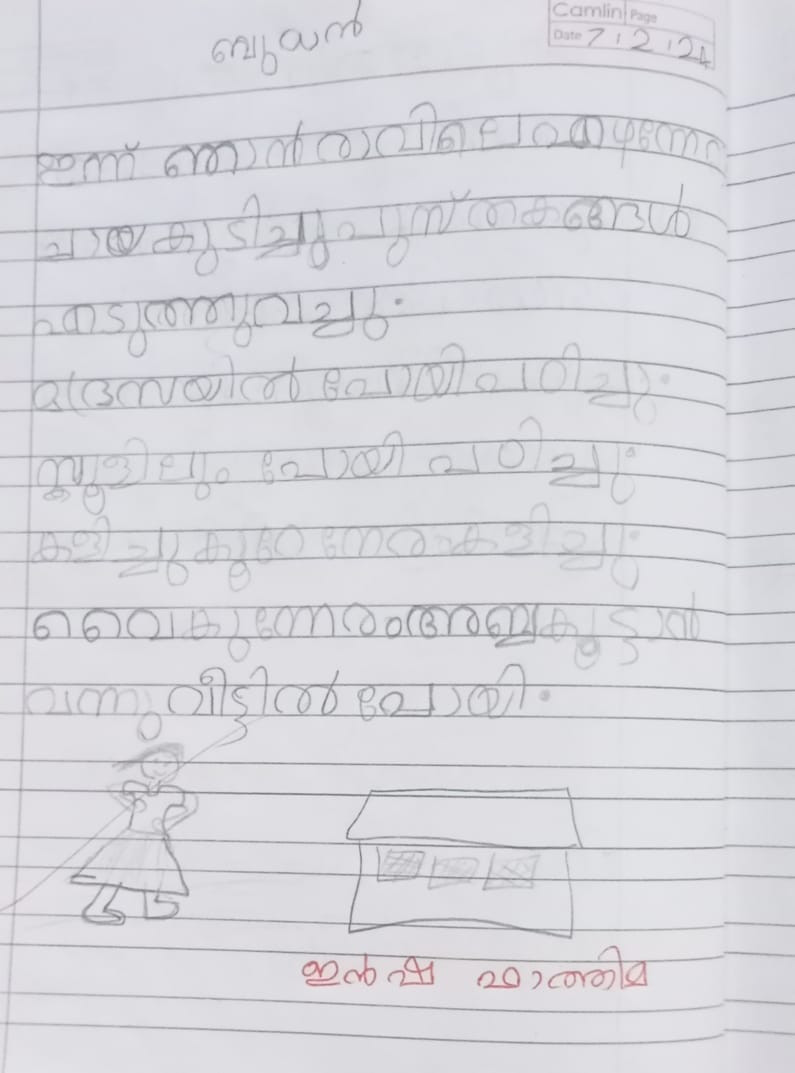 ബുധൻ
Camlin Page
Date 7.2.24
ഇന്ന് ഞാൻ രാവിലെ എഴുന്നേ
ചായകുടിച്ചു പുസ്തകങ്ങൾ
എടുത്തുവച്ചു.
മദ്രസയിൽ പോയി പഠിച്ചു.
സ്കൂളിലും പോയി പഠിച്ചു.
കളിച്ചുകുറേ നേരംകളിച്ചു.
വൈകുന്നേരം കൂട്ടാൻ
വന്നു വീട്ടിൽ പോയി.
ഇൻഷ ഫാത്തിമ